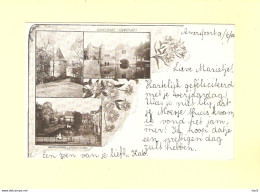 Amersfoort 9/6/00
Lieve Marietje!
Hartelijk gefeliciteerd
met je verjaardag!
Was je niet blij dat
Moesje thuis kwam,
ik vond het jam-
mer! Ik hoop dat je
een prettigen dag
zult hebben.
Een zoen van je liefh.